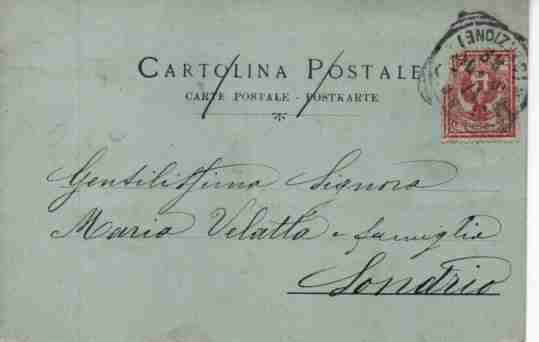 CARTOLINA POSTALE
CARTE POSTALE - POSTKARTE
Gentilissima Signora
Maria Velatta e famiglia
Sondrio